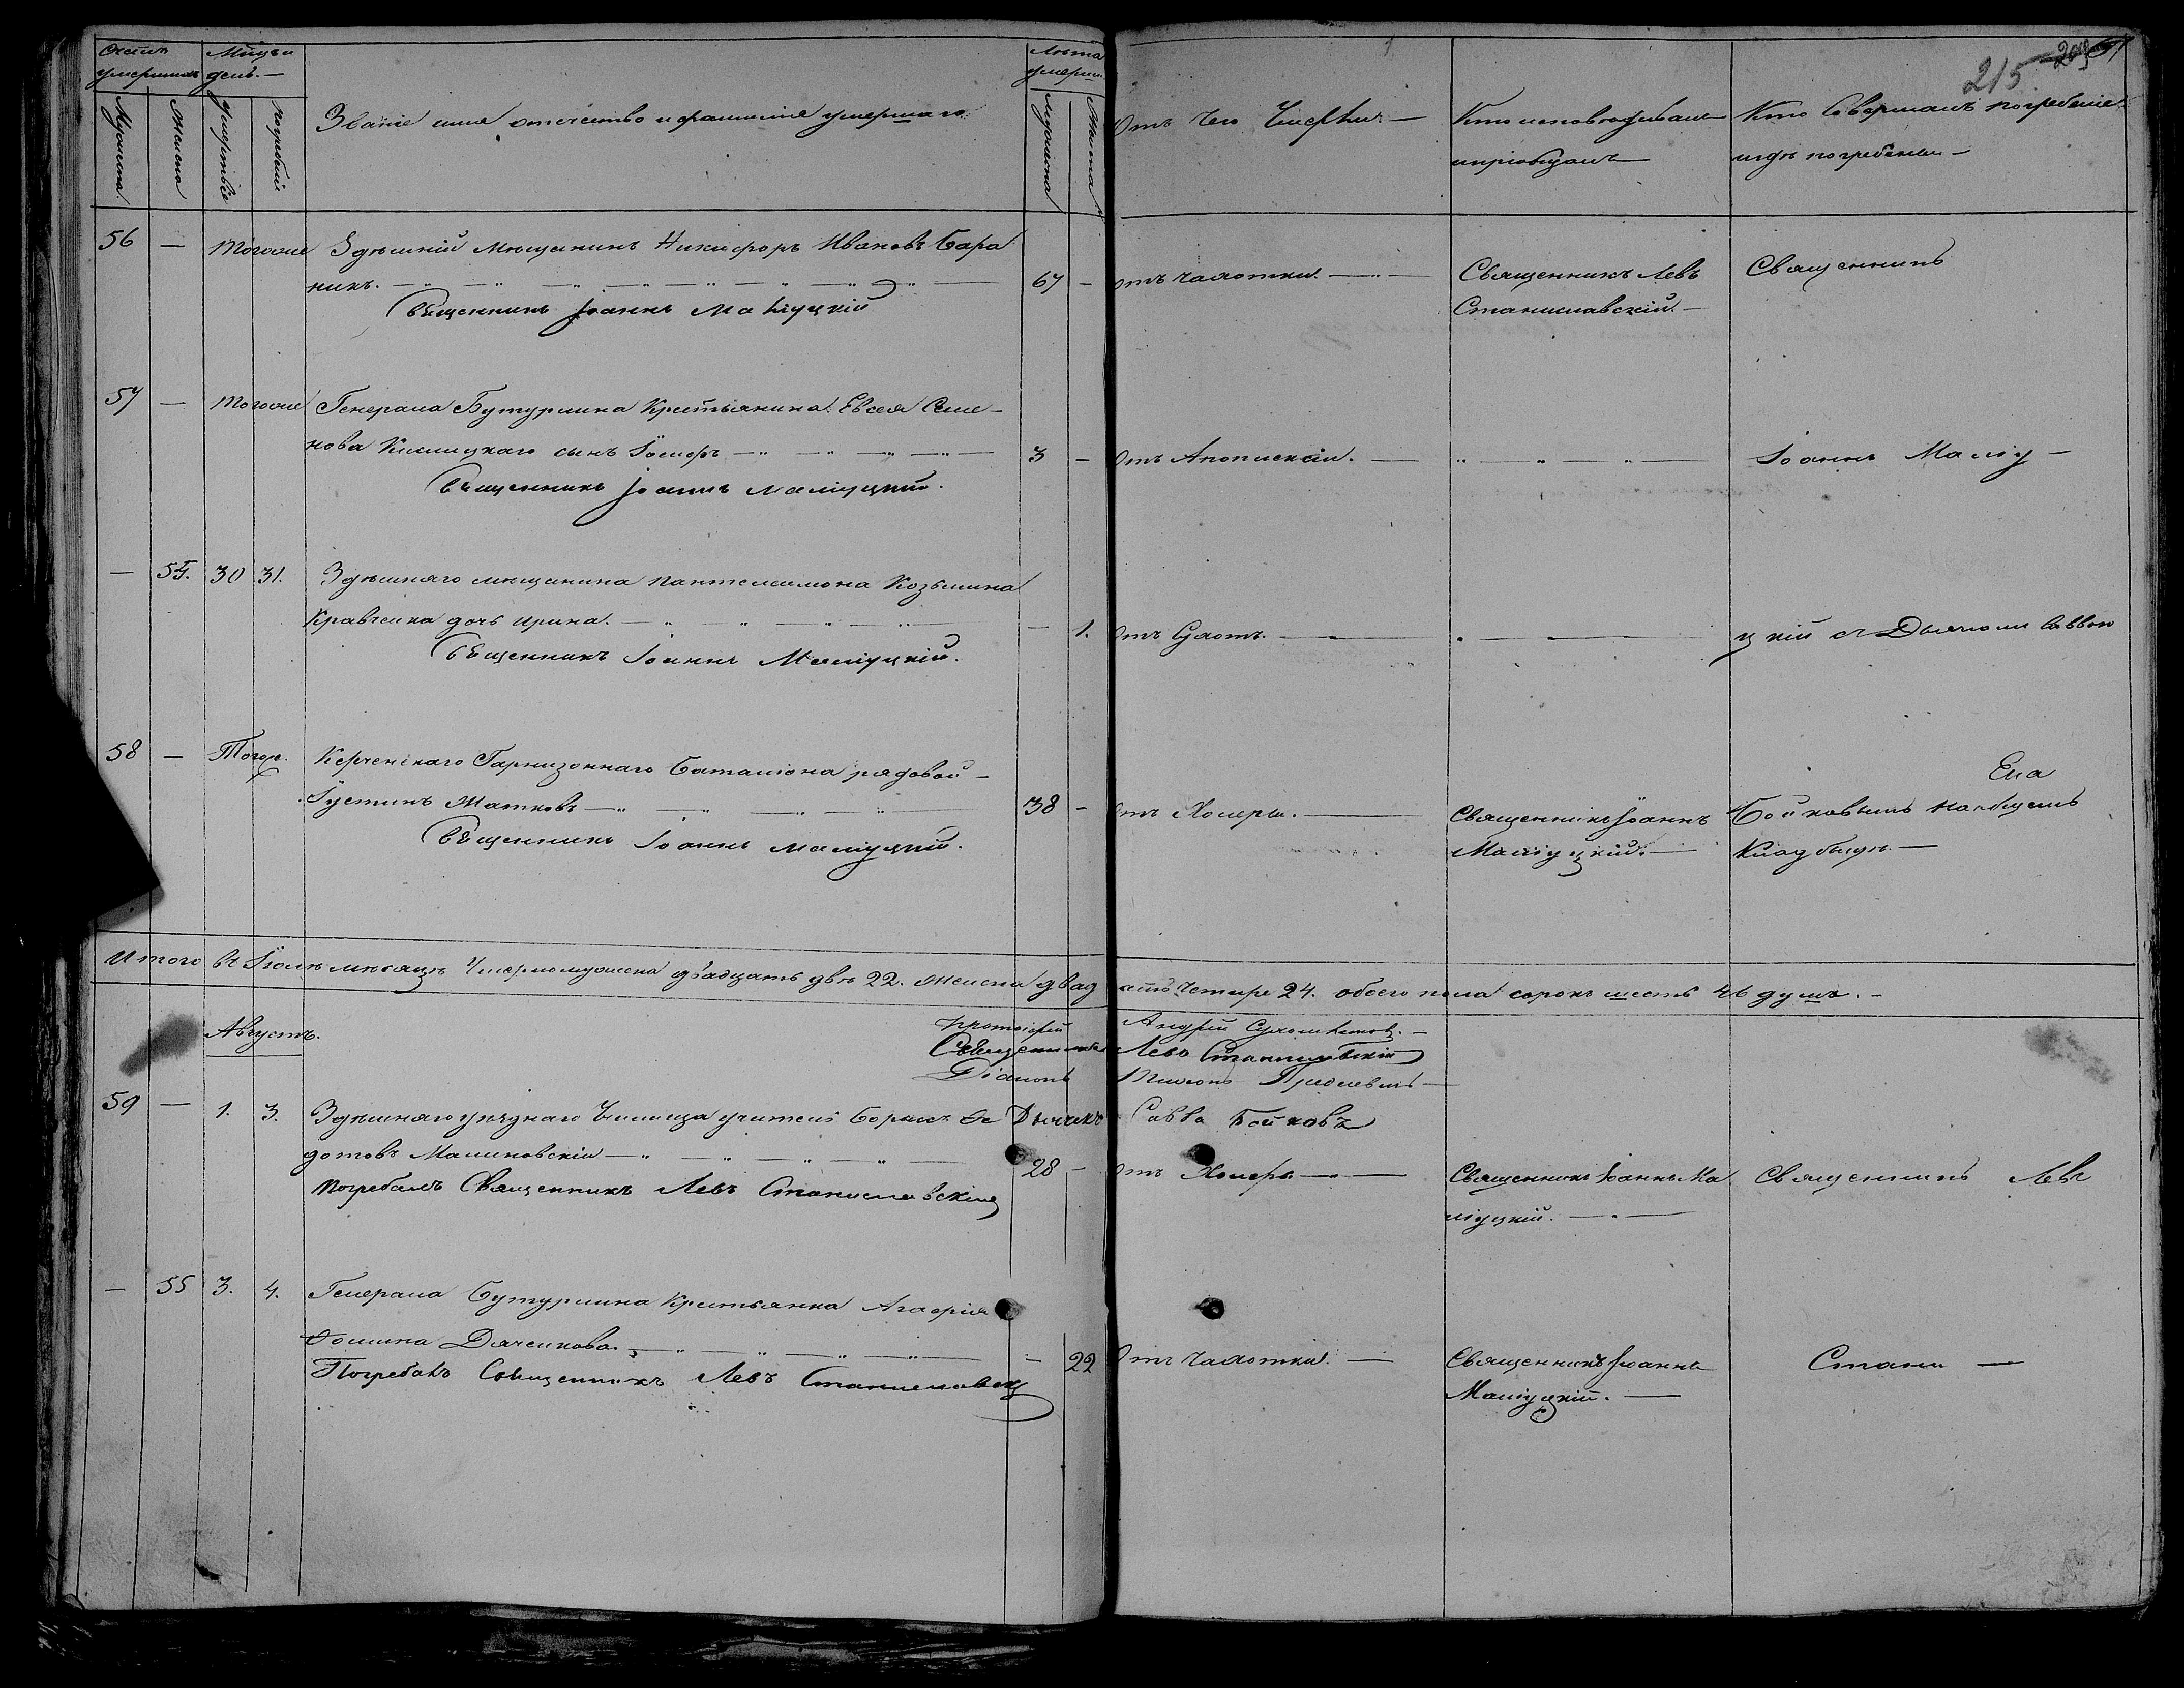 215
Счетъ умершихъ
Мѣсяцъ и день.
Мужеска
Женска
Умертвіе
Погребеніе
Званіе имя отечество и фамилія умершаго
Лѣта умерш.
Мужеска
Женска
Отъ чего умерли
Кто исповѣдывалъ и пріобщалъ
Кто совершалъ погребеніе и гдѣ погребены
56 — Тогоже Здѣшній мѣщанинъ Никифоръ Ивановъ Бара
никъ. 67 — отъ чахотки. Священникъ Левъ Священникъ
Священникъ Іоаннъ Маліуцкій Станиславскій.
57 — Тогоже Генерала Бутурлина Крестьянина Евсея Семе-
нова Кислицкаго сынъ Іосифъ 3 — Отъ Апоплексіи. Іоаннъ Маліу-
Священникъ Іоаннъ Маліуцкій.
— 54. 30 31. Здѣшняго мѣщанина Пантелеимона Козьмина
Кравченка дочь Ирина. — 1. Отъ Сухотъ. цкій съ Дьячкомъ Саввою
Священникъ Іоаннъ Маліуцкій.
58 — Тогоже. Керченскаго Гарнизоннаго Баталіона рядовой
Іустинъ Матковъ 38 — Отъ Холеры. Священникъ Іоаннъ Бойковымъ на общемъ
Священникъ Іоаннъ Маліуцкій. Маліуцкій. Кладбищѣ.
Итого въ Іюлѣ мѣсяцѣ умерло мужеска двадцать двѣ 22. женска двадцать четыре 24. обоего пола сорокъ шесть 46 душъ.
Августъ.
Протоіерей Андрей
Священникъ Левъ Станиславскій
Діаконъ
Дьячекъ Савва Бойковъ
59 — 1. 3. Здѣшняго уѣзднаго Училища учитель Борисъ Ѳе
дотовъ Малиновскій 28 — Отъ Холеры Священникъ Іоаннъ Ма Священникъ Левъ
Погребалъ Священникъ Левъ Станиславскій ліуцкій.
— 55 3. 4. Генерала Бутурлина Крестьянка Агафія
Ѳомина Дяченкова. — 22 Отъ чахотки. Священникъ Іоаннъ Стани —
Погребалъ Священникъ Левъ Станиславскій Маліуцкій.